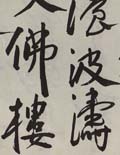 波濤
佛樓